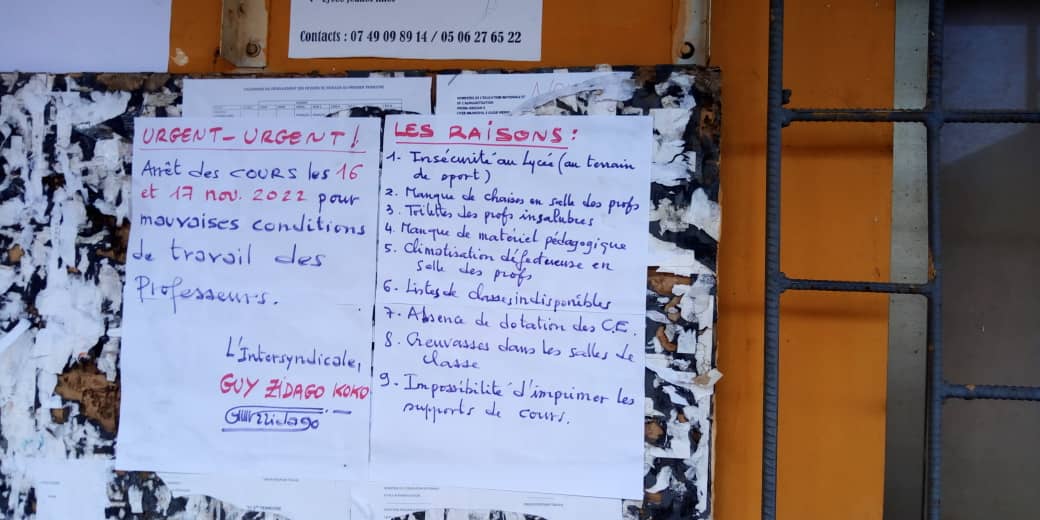 Contacts : 07 49 09 89 14 / 05 06 27 65 22
URGENT-URGENT!
Arrêt des COURS les 16
et 17 nov. 2022 pour
mauvaises conditions
de travail des
Professeurs.
L'Intersyndicale,
GUY ZIDAGO KOKO
LES RAISONS :
1- Insécurité au Lycée (au terrain
de sport)
2. Manque de chaises en salle des profs
3. Toilettes des profs insalubres
4. Manque de matériel pédagogique
5. Climatisation défectueuse en
salle des profs
6. Listes de classes indisponibles
7. Absence de dotation des C.E.
8. Crevasses dans les salles de
classe
9. Impossibilité d'imprimer les
supports de cours.